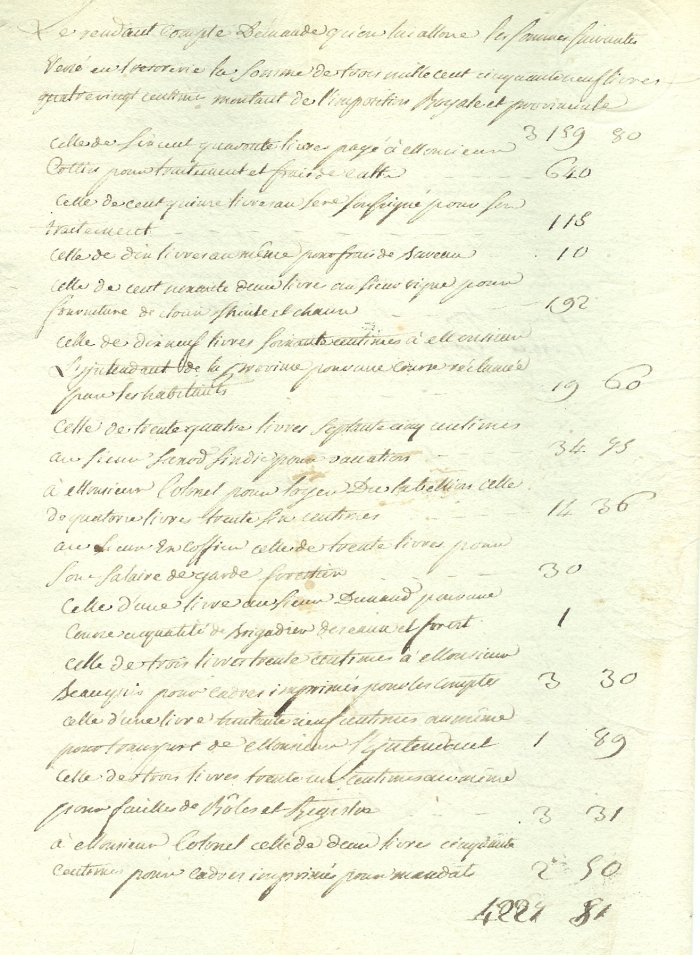 Le rendant Compte Demande qu'on lui alloue les sommes suivantes
Versé en tresorerie la somme de trois mille cent cinquante neuf livres
quatre vingt centimes montant de l'imposition Royale et provinciale
3159 80
celle de six cent quarante livres payé à Monsieur
Collin pour traitement et frais de culte 640
celle de cent quinze livres au seré soussigné pour son
traitement 115
celle de dix livres au même pour frais de bureau 10
celle de cent nonante deux livres au sieur Vique pour
fourniture de et chaux 192
celle de dix neuf livres soixante centimes à Monsieur
L'Intendant de la province pour une course réclamée
par les habitants 19 60
celle de trente quatre livres septante cinq centimes
au sieur sindic pour vacation 34 75
à Monsieur Colonel pour loyer Du tabellion celle
de quatorze livres trente six centimes 14 36
au sieur celle de trente livres pour
son salaire de garde forestier 30
celle d'une livre au sieur Dunand pour une
Course en qualité de Brigadier des eaux et forêt 1
celle de trois livres trente centimes à Monsieur
pour cadres imprimés pour les comptes 3 30
celle d'une livre huitante neuf centimes au même
pour transport de Monsieur l'Intendant 1 89
celle de trois livres trente un centimes au même
pour feuilles de Rôles et Registre 3 31
à Monsieur Colonel celle de deux livres cinquante
centimes pour cadres imprimé pour mandats 2 50
4227 81